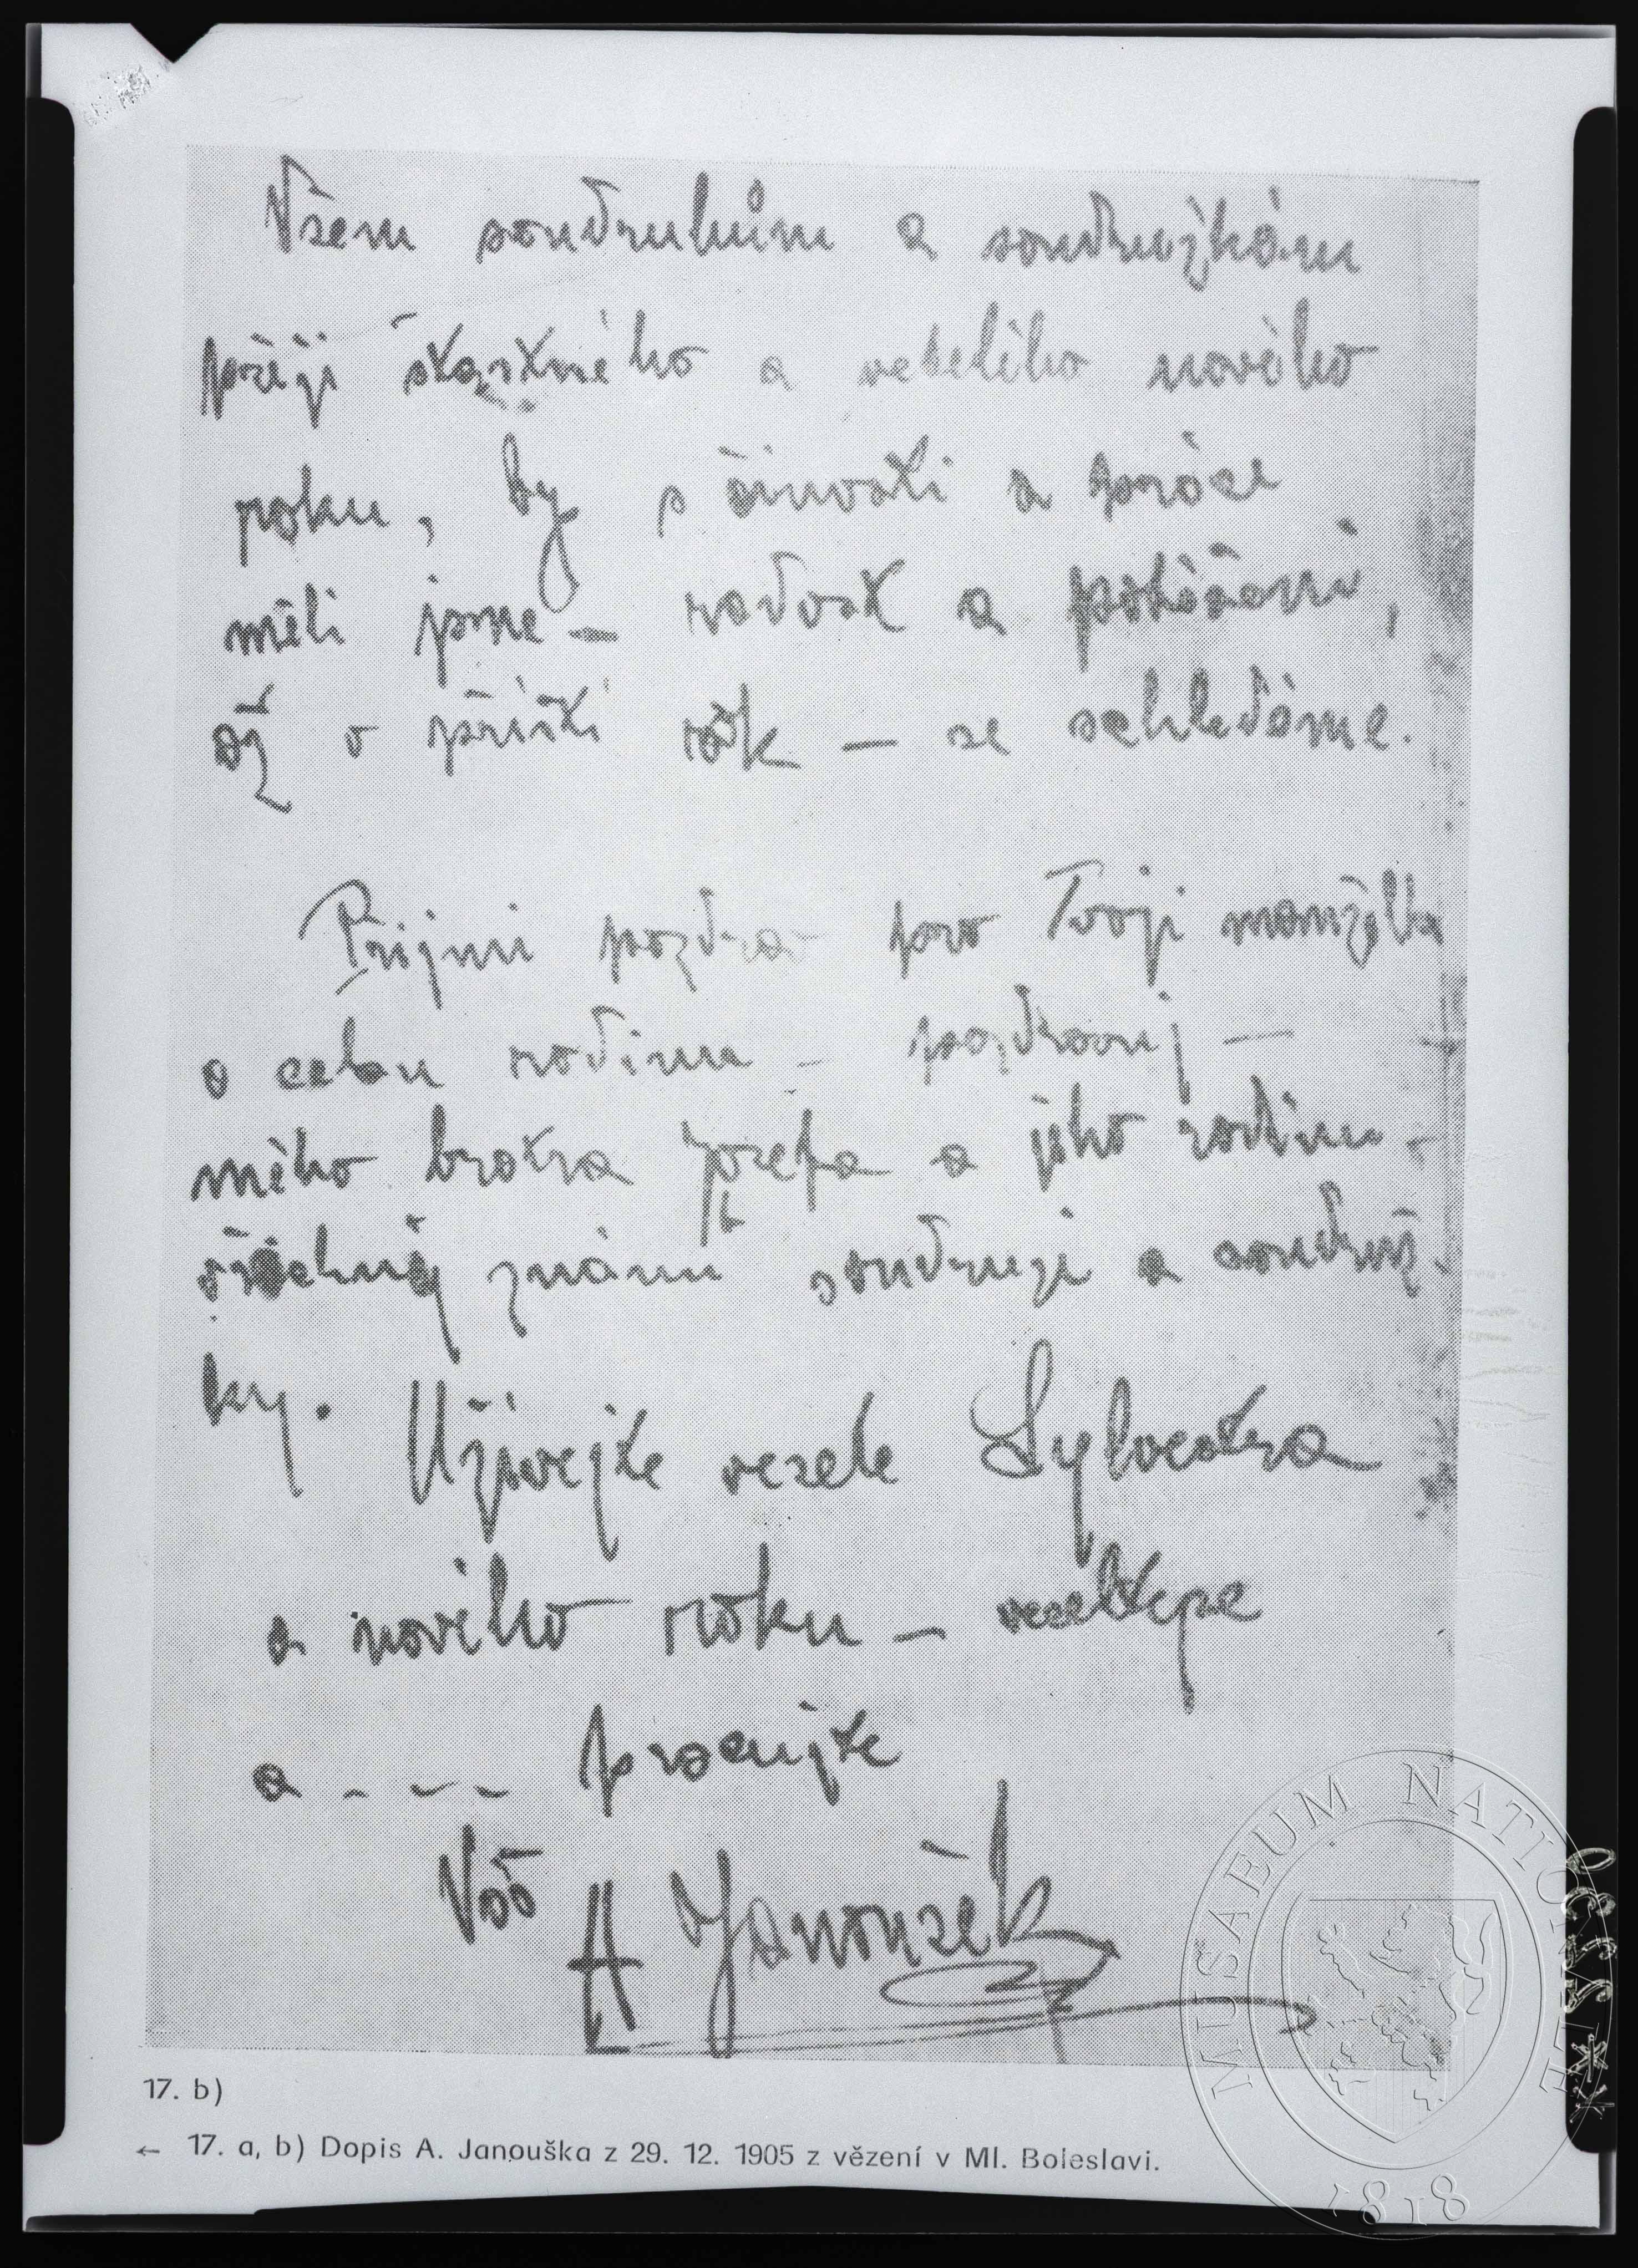 Všem soudruhům a soudružkám
přeji šťastného a veselého nového
roku, by s činnosti a práce
měli jsme – radost a potěšení,
až v příští rok – se shledáme.
Přijmi pozdrav pro Tvoji manželku
a celou rodinu – pozdravuj –
mého bratra Josefa a jeho rodinu –
všechny známé soudruzi a soudruž-
ky. Užívejte vesele Sylvestra
a nového roku – veselte se
a - - - pracujte
Váš
A Janoušek
17. b)
← 17. a, b) Dopis A. Janouška z 29. 12. 1905 z vězení v Ml. Boleslavi.
MUSAEUM NATIONALE
1818